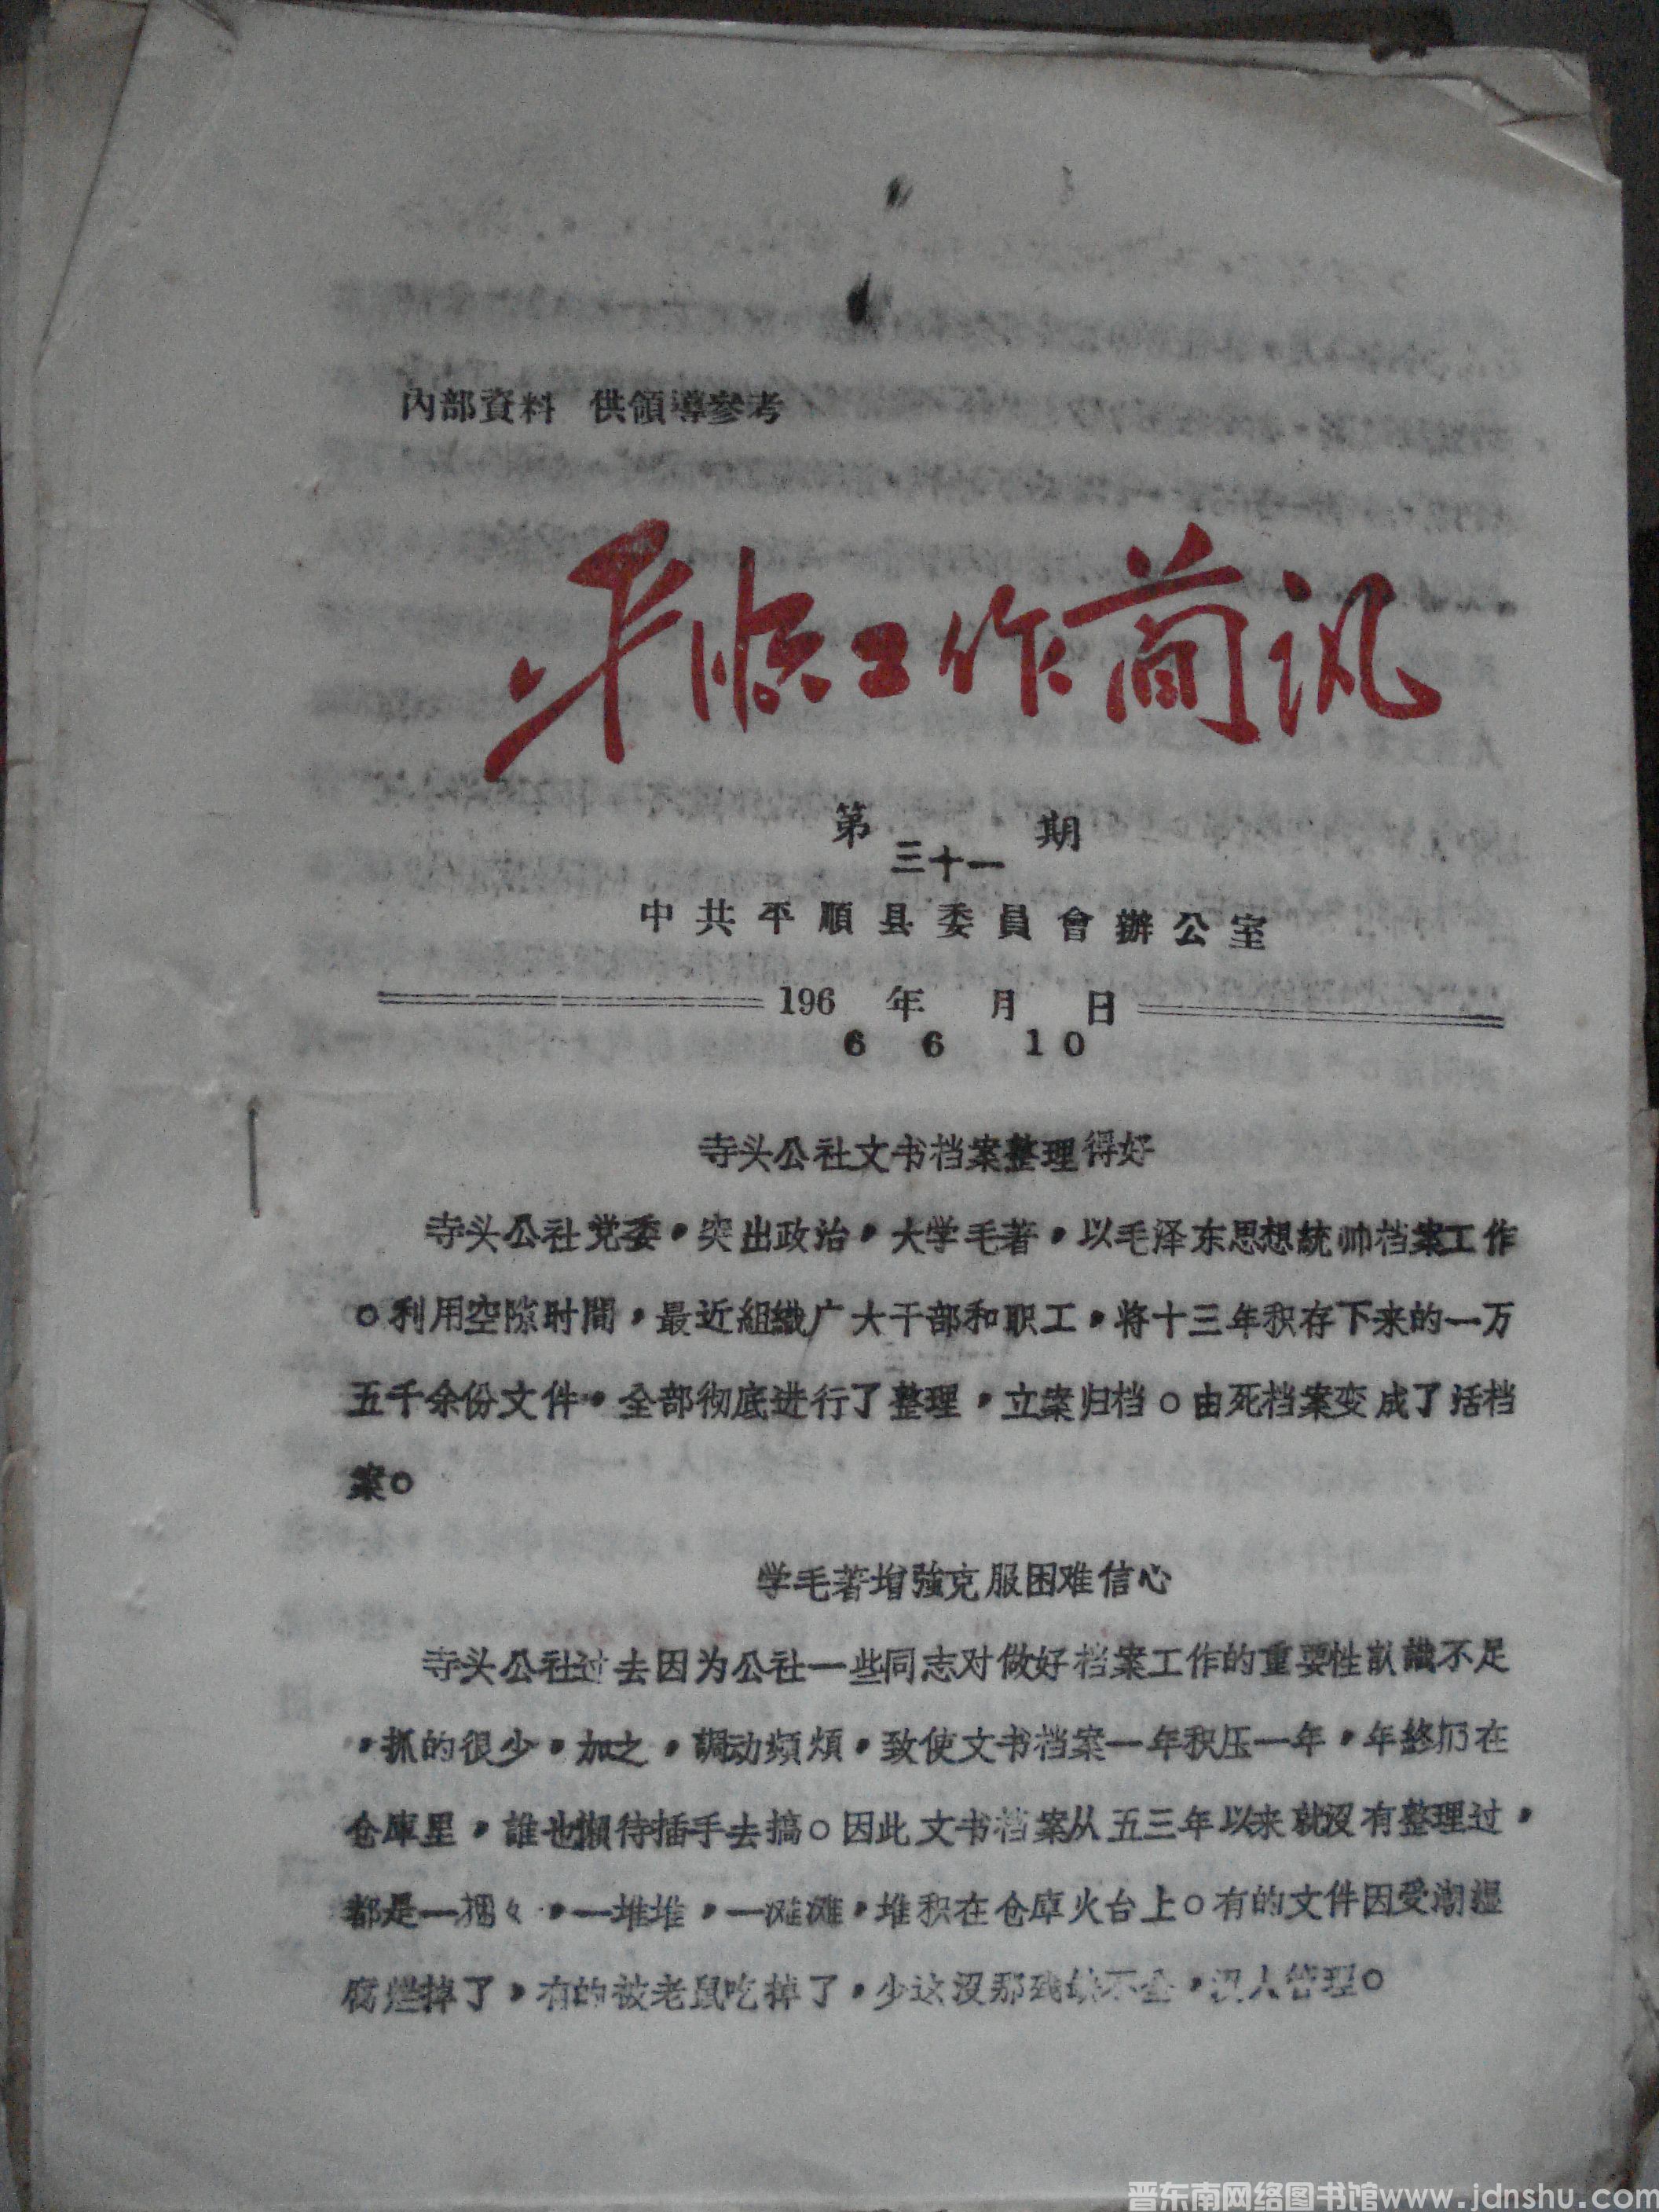 內部資料 供領導參考
平顺工作简讯
第三十一期
中共平順县委員會辦公室
1966年6月10日
寺头公社文书档案整理得好
寺头公社党委，突出政治，大学毛著，以毛泽东思想統帅档案工作
。利用空隙时間，最近組織广大干部和职工，将十三年积存下来的一万
五千余份文件，全部彻底进行了整理，立案归档。由死档案变成了活档
案。
学毛著增強克服困难信心
寺头公社过去因为公社一些同志对做好档案工作的重要性認識不足
，抓的很少，加之，調动频煩，致使文书档案一年积压一年，年終扔在
仓庫里，誰也懒待插手去搞。因此文书档案从五三年以来就沒有整理过，
都是一捆々，一堆堆，一滩滩，堆积在仓庫火台上。有的文件因受潮湿
腐烂掉了，有的被老鼠吃掉了，少这沒那残缺不全，没人管理。
晋东南网络图书馆www.jdnshu.com